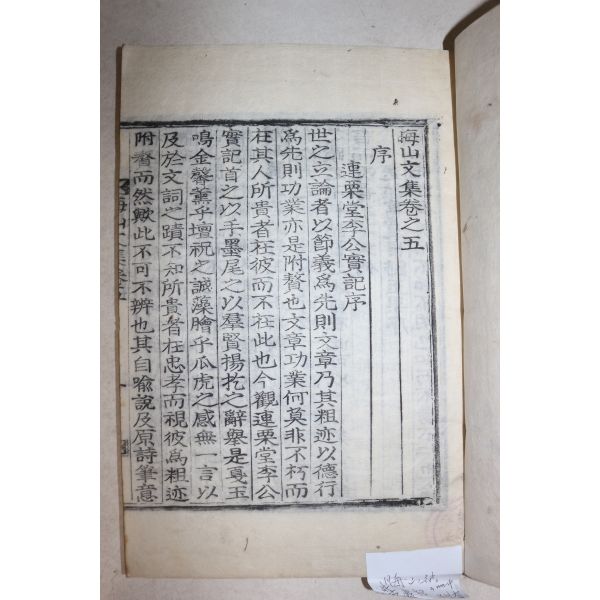 梅山文集卷之五
序
連栗堂李公實記序
世之立論者以節義爲先則文章乃其粗迹以德行
爲先則功業亦是附贅也文章功業何莫非不朽而
在其人所貴者在彼而不在此也今觀連栗堂李公
實記首之以手墨尾之以羣賢揚扢之辭舉是戛玉
鳴金馨薰乎壇祝之誠藻膾乎瓜虎之感無一言以
及於文詞之蹟不知所貴者在忠孝而視彼爲粗迹
附贅而然歟此不可不辨也其自喩說及原詩筆意